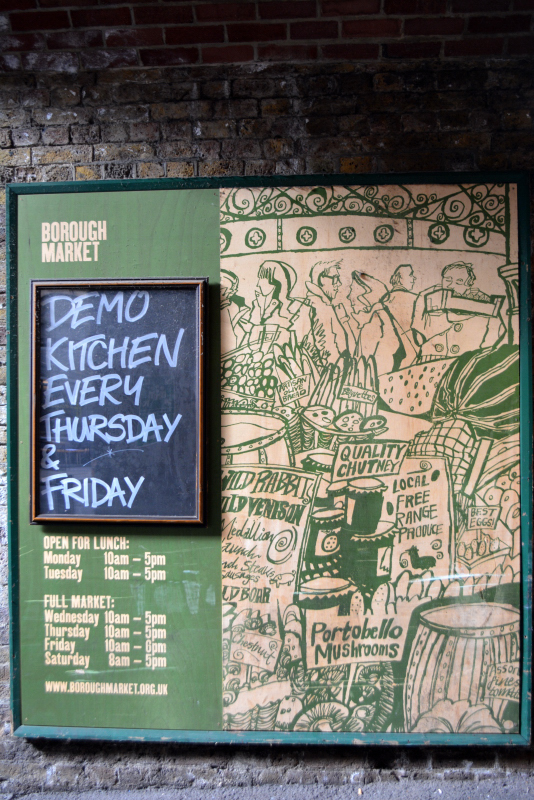 BOROUGH
MARKET
DEMO
KITCHEN
EVERY
THURSDAY
&
FRIDAY
OPEN FOR LUNCH:
Monday 10am – 5pm
Tuesday 10am – 5pm
FULL MARKET:
Wednesday 10am – 5pm
Thursday 10am – 5pm
Friday 10am – 6pm
Saturday 8am – 5pm
WWW.BOROUGHMARKET.ORG.UK
ARTISAN
OLIVE
BREAD
QUALITY
CHUTNEY
WILD RABBIT
WILD VENISON
Medallion
LOCAL
FREE
RANGE
PRODUCE
BEST
EGGS!
BOAR
Portobello
Mushrooms